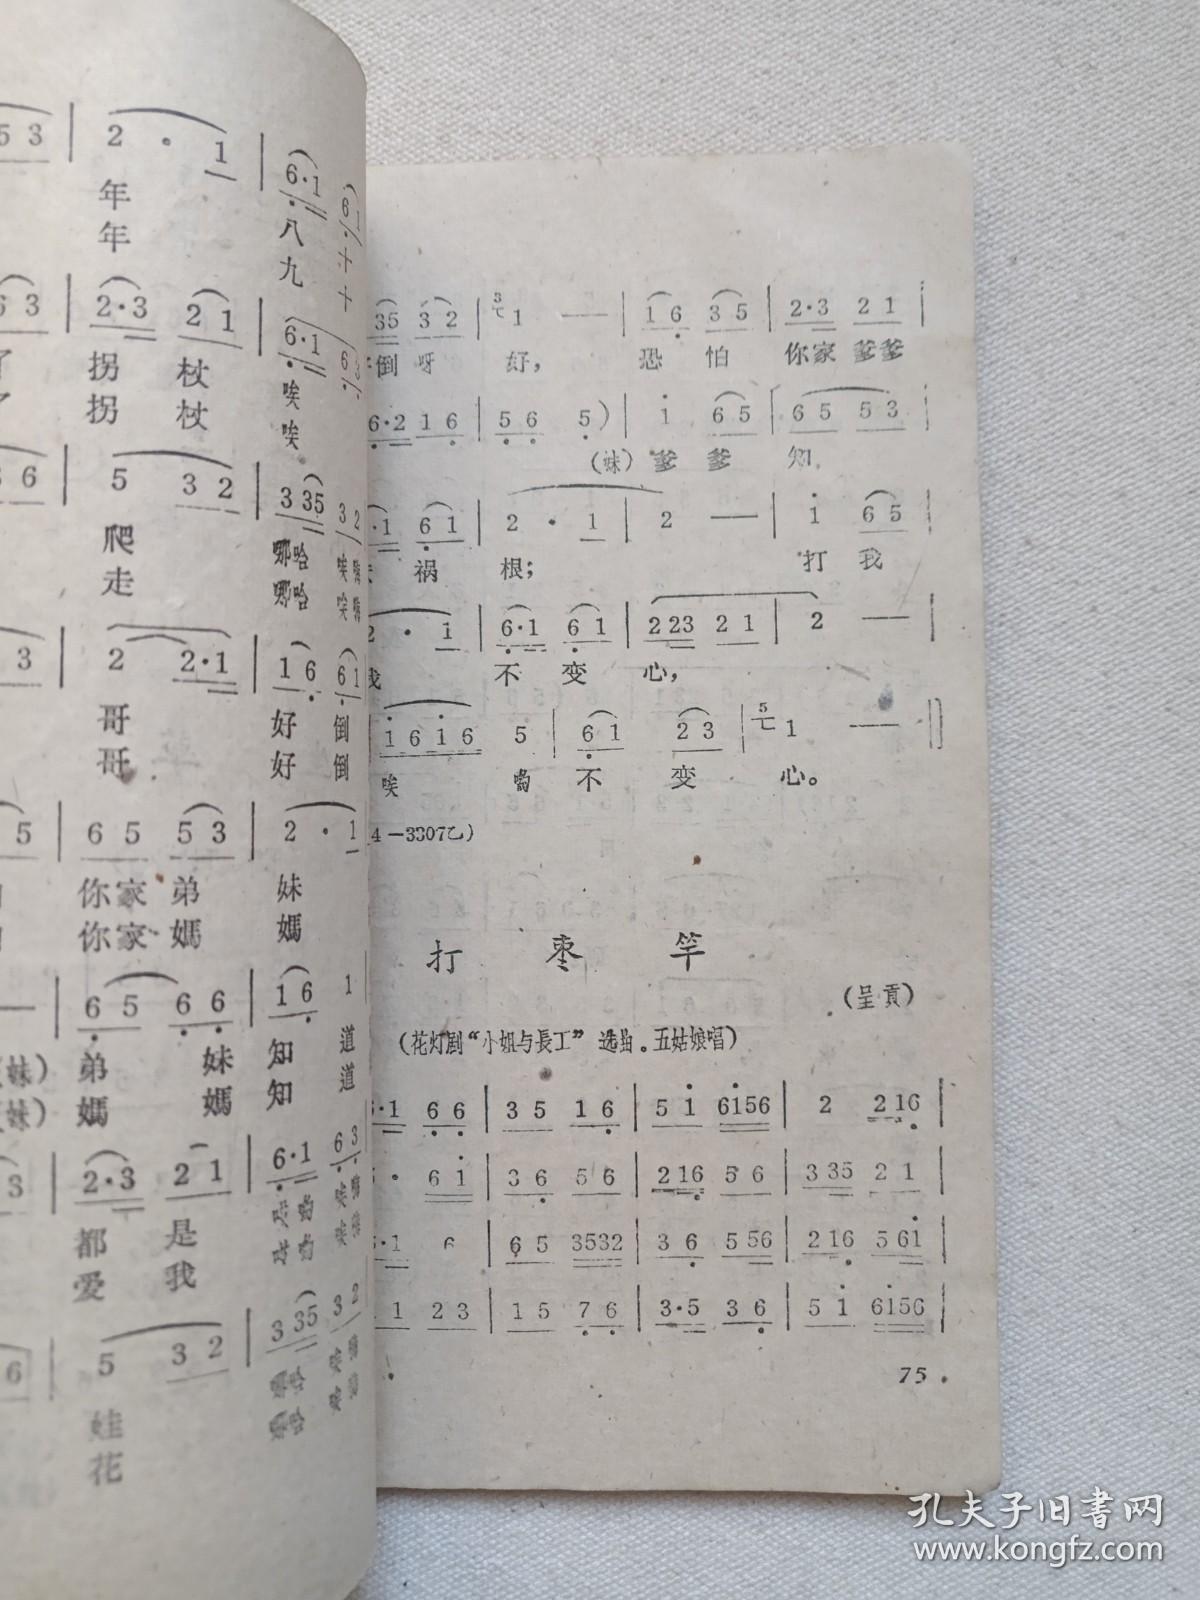 5 3 | 2 · 1 | 6·1 6 1
年 八 十
年 九 十
6 3 | 2·3 2 1 | 6·1 6 3
了 拐 杖 唉
拐 杖 唉
3 6 | 5 3 2 | 3 35 3 2
爬 哪哈 唉
走 哪哈 唉
3 | 2 2·1 | 1 6 6 1
哥 好 倒
哥 好 倒
5 | 6 5 5 3 | 2 · 1
你家 弟 妹
你家 媽 媽
— | 6 5 6 6 | 1 6 1
(妹) 弟 妹 知 道
(妹) 媽 媽 知 道
3 | 2·3 2 1 | 6·1 6 3
都 是
爱 我
6 | 5 3 2 | 3 35 3 2
娃 哪哈
花 哪哈
35 3 2 | 1 — | 1 6 3 5 | 2·3 2 1 |
倒 呀 好, 恐 怕 你家 爹爹
6·2 1 6 | 5 6 5 ) | 1 6 5 | 6 5 5 3 |
(妹) 爹 爹 知
·1 6 1 | 2 · 1 | 2 — | 1 6 5 |
祸 根; 打 我
2 · 1 | 6·1 6 1 | 2 23 2 1 | 2 — |
我 不 变 心,
1 6 1 6 5 | 6 1 2 3 | 1 —
唉 不 变 心。
4—3307乙)
打 枣 竿
(呈貢)
(花灯剧“小姐与長工”选曲。五姑娘唱)
6·1 6 6 | 3 5 1 6 | 5 1 6156 | 2 216 |
· 6 1 | 3 6 5 6 | 216 5 6 | 3 35 2 1 |
·1 6 | 6 5 3532 | 3 6 5 56 | 216 5 61 |
1 2 3 | 1 5 7 6 | 3·5 3 6 | 5 1 6156 |
75
孔夫子旧书网
www.kongfz.com